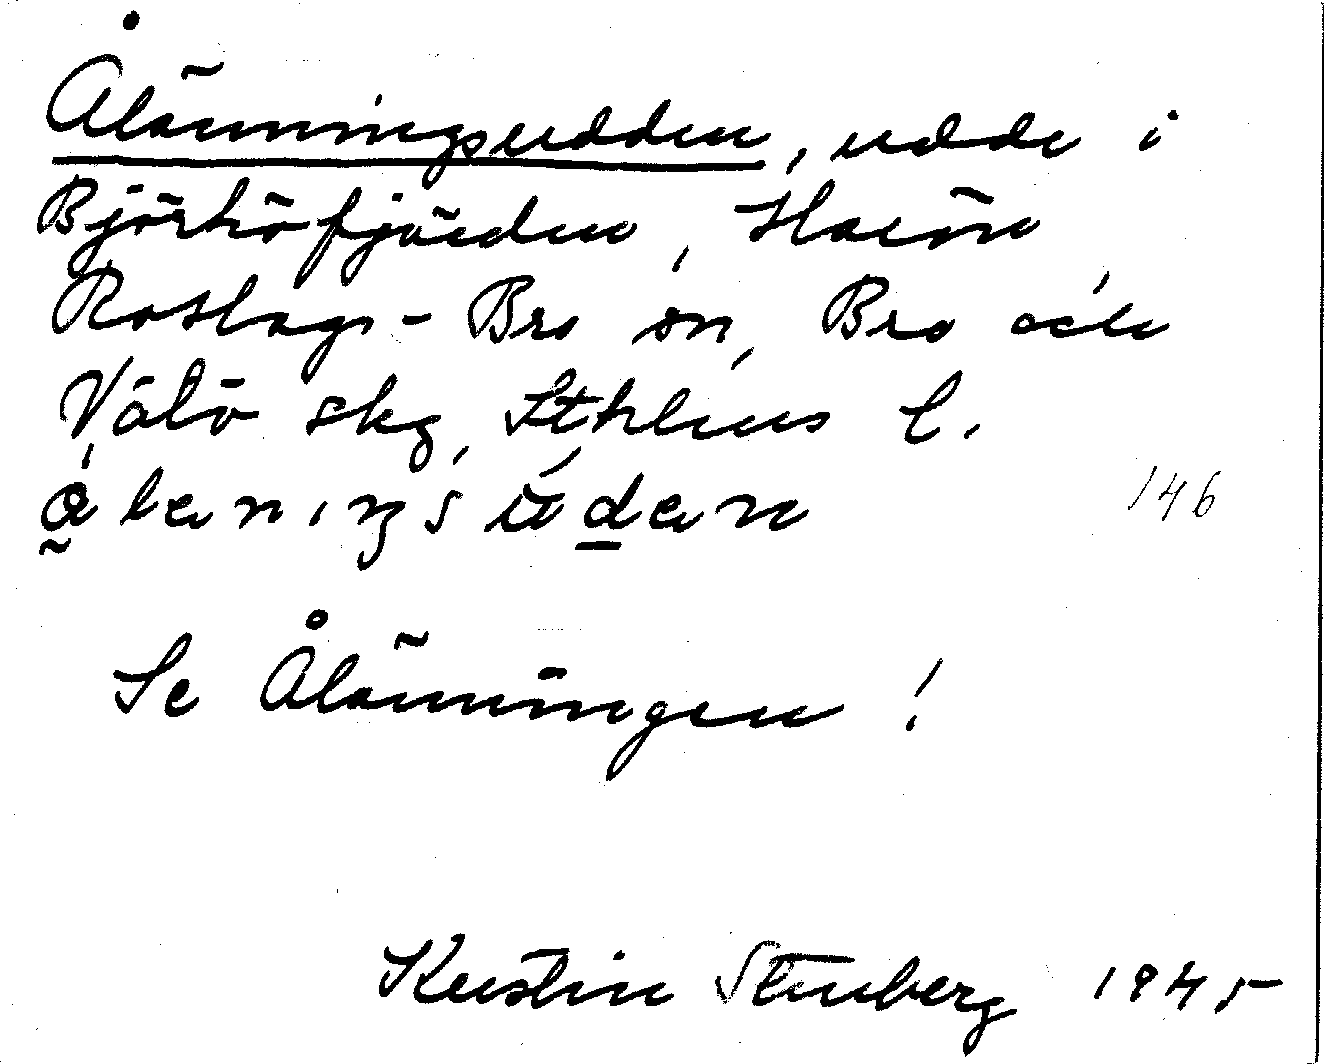 Ålänningsudden, udde i
Björköfjärden, Havön
Roslags-Bro sn, Bro och
Vätö skg, Sthlms l.
ålenıŋsüden 146
Se Ålänningen!
Kerstin Stenberg 1945